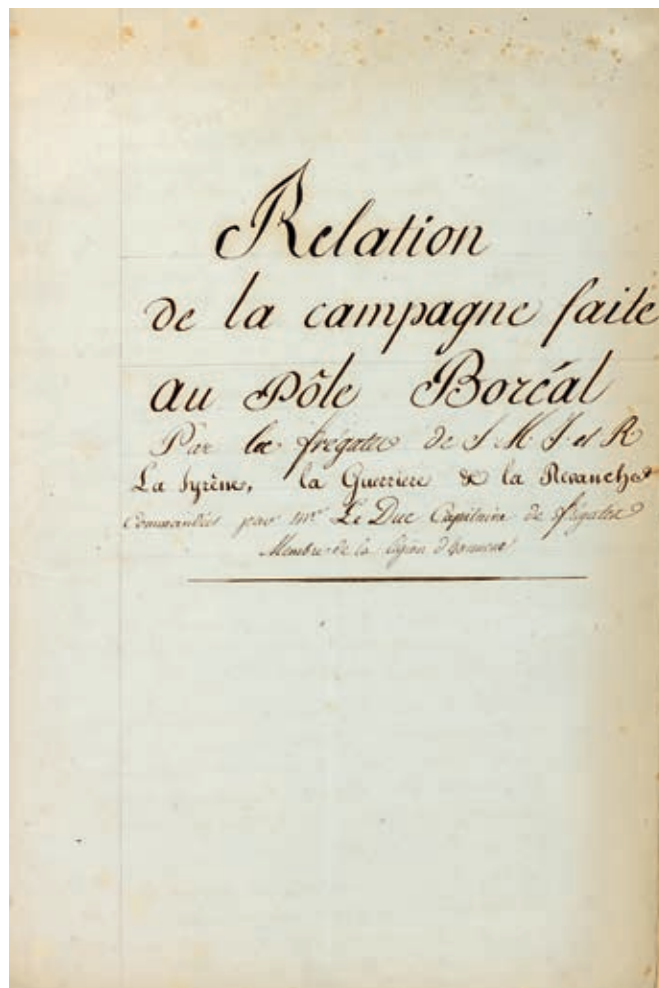 Relation
de la campagne faite
au Pôle Boréal
Par les frégates de S. M. I. et R
La Syrène, la Guerriere & la Revanche
Commandées par Mr. Le Duc Capitaine de frégates
Membre de la légion d'honneur